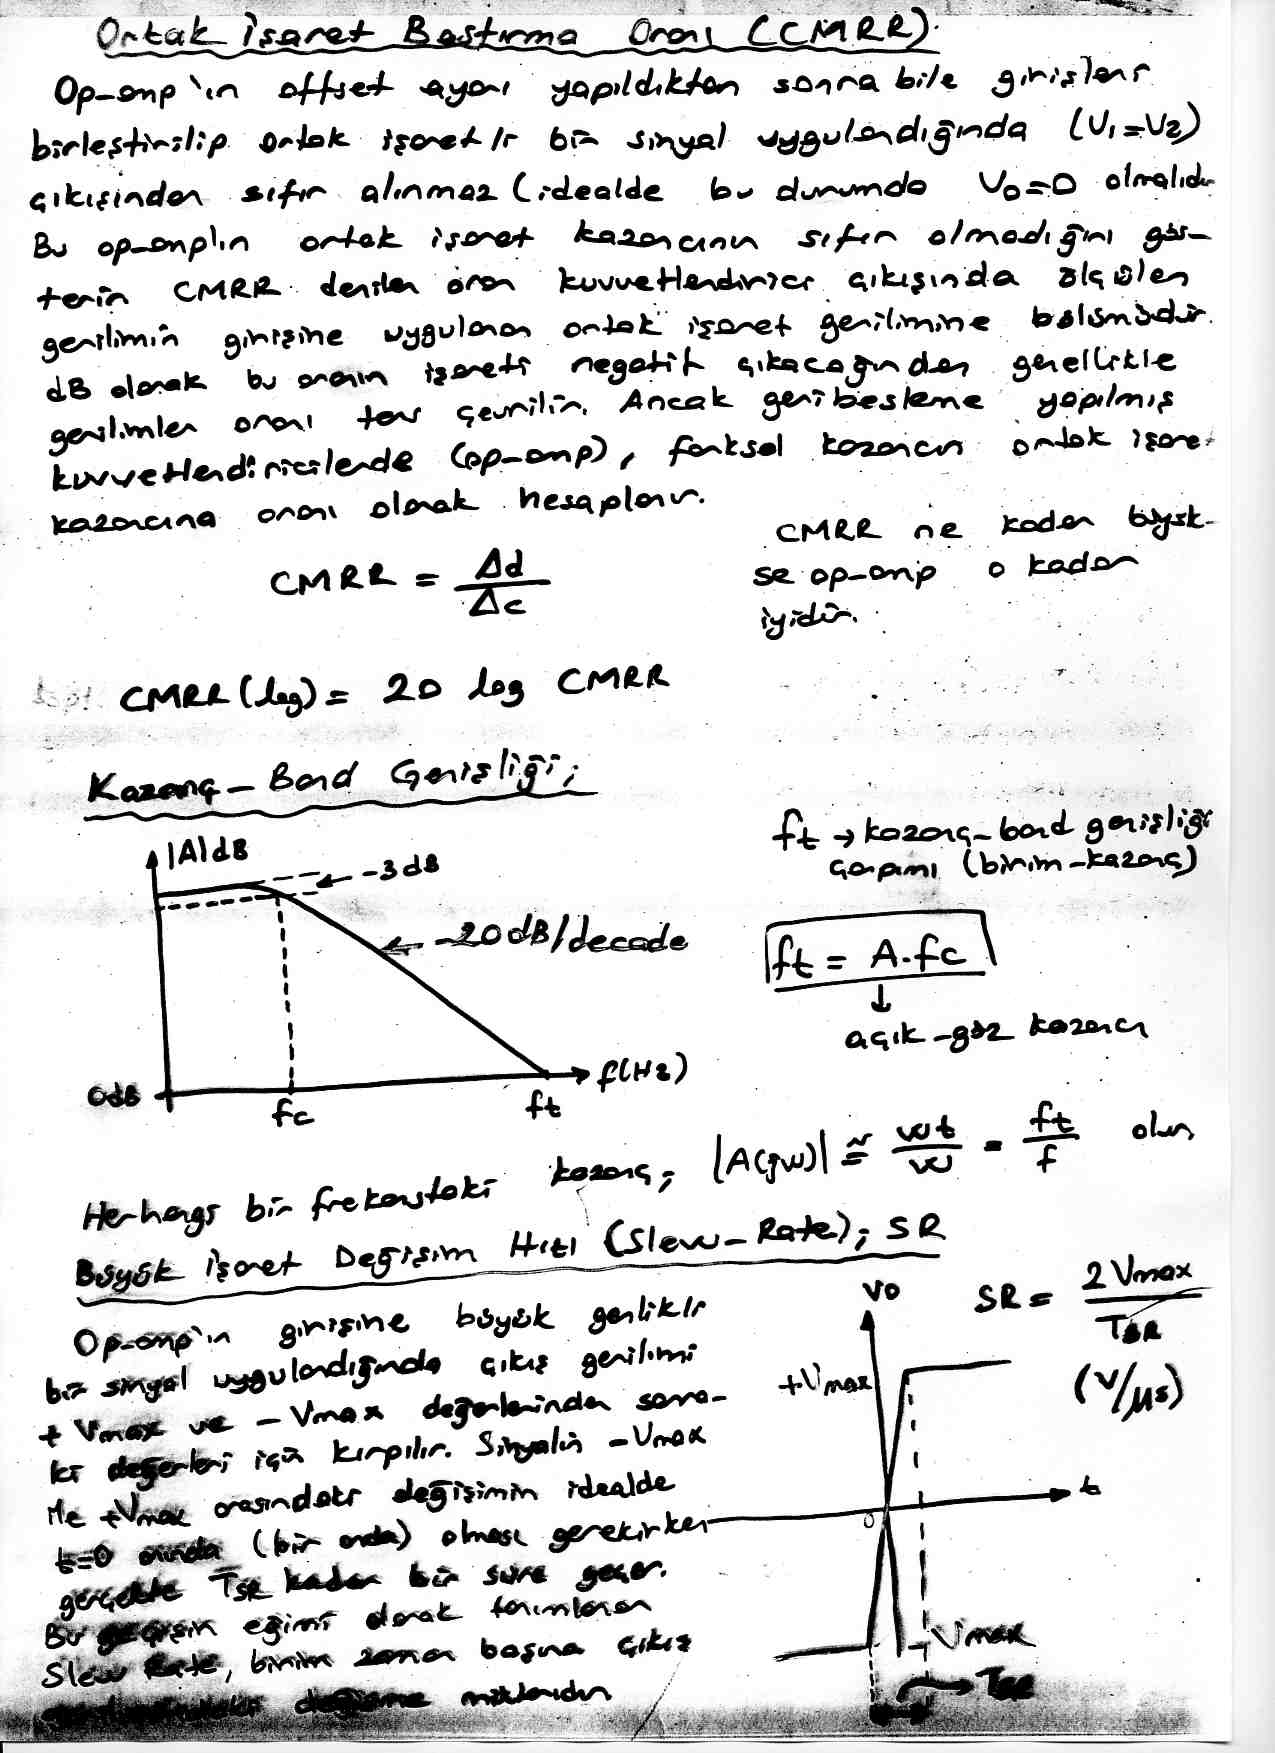 Ortak İşaret Bastırma Oranı (CMRR).
Op-amp'ın offset ayarı yapıldıktan sonra bile girişler
birleştirilip ortak işaretli bir sinyal uygulandığında (V1=V2)
çıkışından sıfır alınmaz (idealde bu durumda Vo=0 olmalıdır
Bu op-amp'ın ortak işaret kazancının sıfır olmadığını gös-
terir CMRR denilen oran kuvvetlendirici çıkışında ölçülen
gerilimin girişine uygulanan ortak işaret gerilimine bölümüdür.
dB olarak bu oranın işareti negatif çıkacağından genellikle
gerilimler oranı ters çevrilir. Ancak geribesleme yapılmış
kuvvetlendiricilerde (op-amp), farksal kazancın ortak işaret
kazancına oranı olarak hesaplanır.
CMRR = Δd / Δc
CMRR ne kadar büyük-
se op-amp o kadar
iyidir.
CMRR(log) = 20 log CMRR
Kazanç-Band Genişliği;
|A|dB
-3dB
-20dB/decade
0dB
fc
ft
f(Hz)
ft → kazanç-band genişliği
çarpımı (birim-kazanç)
ft = A.fc
↓
açık-göz kazancı
Herhangi bir frekanstaki kazanç; |A(jw)| ≅ wt/w = ft/f olur
Büyük İşaret Değişim Hızı (Slew-Rate); SR
Op-amp'ın girişine büyük genlikli
bir sinyal uygulandığında çıkış gerilimi
+Vmax ve -Vmax değerlerinden sonra-
ki değerleri için kırpılır. Sinyalin -Vmax
ile +Vmax arasındaki değişimin idealde
t=0 anında (bir anda) olması gerekirken
gerçekte TSR kadar bir süre geçer.
Bu geçişin eğimi olarak tanımlanan
Slew Rate, birim zaman başına çıkış
değişme miktarıdır
Vo
+Vmax
0
t
-Vmax
TSR
SR = 2Vmax / TSR
(V/μs)